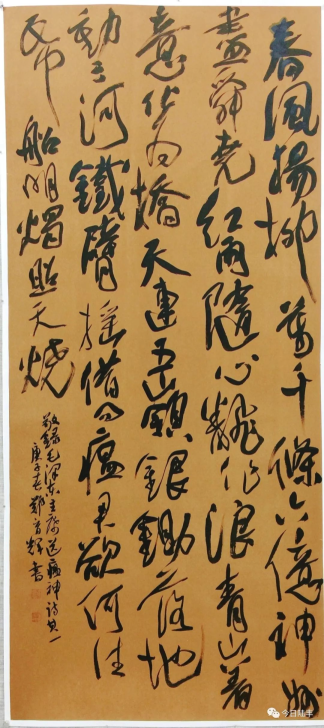 春風楊柳萬千條六億神州
盡舜堯紅雨隨心飜作浪青山着
意化为橋天連五嶺銀鋤落地
動三河鐵臂搖借问瘟君欲何往
帋船明燭照天燒
敬錄毛澤東主席送瘟神詩其一
庚子春鄭輝書
今日陆丰